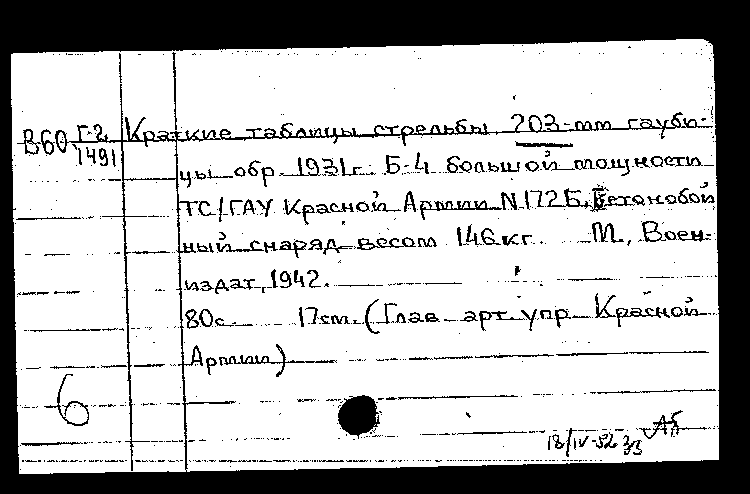 В60 Г-2 Краткие таблицы стрельбы 203-mm гауби-
1491
цы обр. 1931г. Б-4 большой мощности
ТС/ГАУ Красной Армии N172Б. Бетонобой
ный снаряд весом 146кг. М., Воен-
издат, 1942.
80с. 17см. (Глав. арт. упр. Красной
Армии)
6
18/IV-52